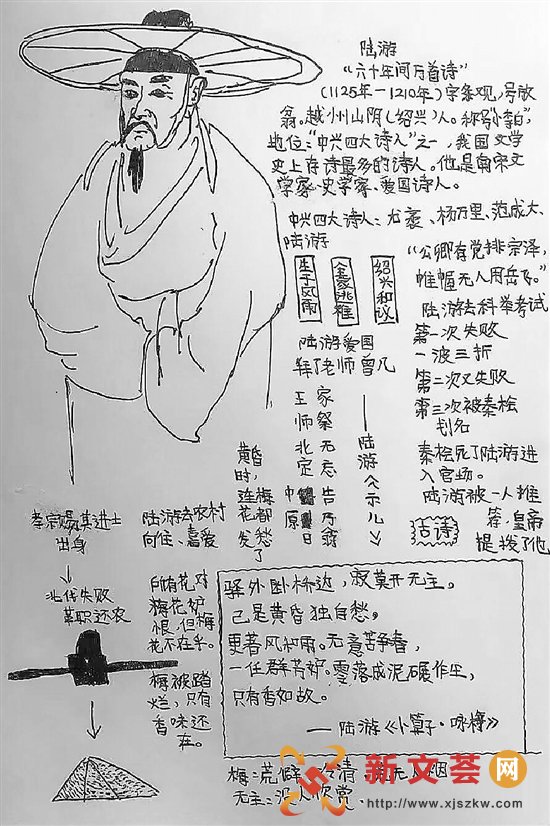 陆游
“六十年间万首诗”
(1125年—1210年)字务观,号放
翁。越州山阴(绍兴)人。称号“小李白”
地位:“中兴四大诗人”之一,我国文学
史上存诗最多的诗人。他是南宋文
学家、史学家、爱国诗人。
中兴四大诗人:尤袤、杨万里、范成大、
陆游
生于风雨
全家逃难
绍兴和议
“公卿有党排宗泽,
帷幄无人用岳飞。”
陆游去科举考试
第一次失败
一波三折
第二次又失败
第三次被秦桧
划名
秦桧死了陆游进
入官场。
陆游被一人推
荐,皇帝
提拨了他
陆游爱国
拜了老师曾几
王师北定中原日
家祭无忘告乃翁
——陆游《示儿》
古诗
黄昏时,
连梅花都愁
发了
孝宗赐其进士
出身
北伐失败
革职还农
陆游去农村
向往、喜爱
所有花对
梅花妒
恨,但梅
花不在乎。
梅被踏
烂,只有
香味还
在。
驿外卧桥达,寂莫开无主。
己是黄昏独自愁,
更著风和雨。无意苦争春,
一任群芳妒。零落成泥碾作尘,
只有香如故。
——陆游《卜算子·咏梅》
梅:荒僻、冷清、
无主:没人欣赏
新文荟网
http://www.xjszkw.com